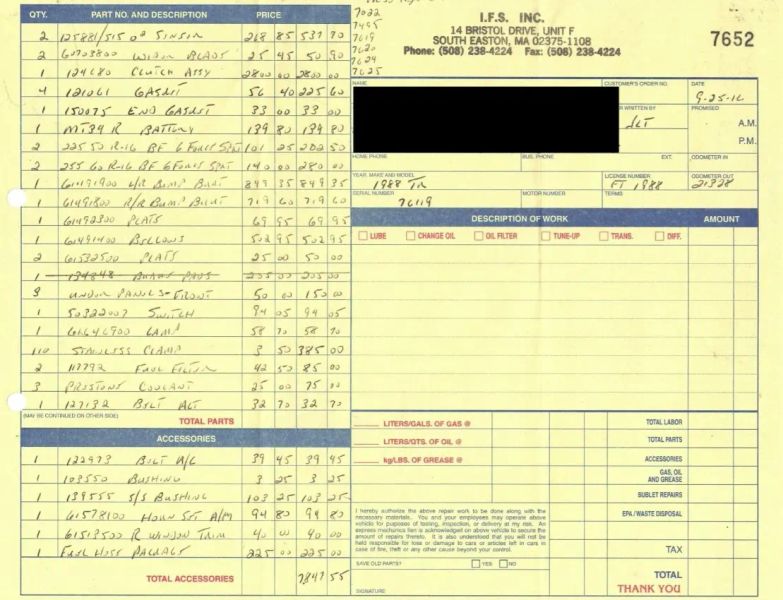 7022
7495
7619
7620
7624
7625
I.F.S. INC.
14 BRISTOL DRIVE, UNIT F
SOUTH EASTON, MA 02375-1108
Phone: (508) 238-4224 Fax: (508) 238-4224
7652
QTY. PART NO. AND DESCRIPTION PRICE
2 125881/515 O2 SENSOR 268 85 537 70
2 60703800 WIPER BLADE 25 45 50 90
1 124680 CLUTCH ASSY 2800 00 2800 00
4 121061 GASKET 56 40 225 60
1 150075 END GASKET 33 00 33 00
1 MT34 R BATTERY 139 80 139 80
2 225 50 R-16 BF G FORCE SPRT 101 25 202 50
2 255 60 R-16 BF G FORCE SPRT 140 00 280 00
1 61491900 L/R BUMP BRKT 849 35 849 35
1 61491800 R/R BUMP BRKT 719 60 719 60
1 61492300 PLATE 69 95 69 95
1 61491400 BELLOWS 502 95 502 95
2 61532500 PLATE 25 00 50 00
1 134848 BRAKE PADS 205 00 205 00
3 UNDER PANELS-FRONT 50 00 150 00
1 50322007 SWITCH 94 05 94 05
1 61646900 LAMP 58 70 58 70
110 STAINLESS CLAMP 3 50 385 00
2 117792 FUEL FILTER 42 50 85 00
3 PRESTONE COOLANT 25 00 75 00
1 127132 BELT ALT 32 70 32 70
(MAY BE CONTINUED ON OTHER SIDE) TOTAL PARTS
ACCESSORIES
1 122973 BELT A/C 39 45 39 45
1 103550 BUSHING 3 25 3 25
1 139555 S/S BUSHING 103 25 103 25
1 61578100 HORN SET 94 80 94 80
1 61513500 R WINDOW TRIM 40 00 40 00
1 FUEL HOSE PACKAGE 225 00 225 00
TOTAL ACCESSORIES 7847 55
NAME
CUSTOMER'S ORDER NO.
DATE
9-25-12
WRITTEN BY
PROMISED
A.M.
P.M.
HOME PHONE BUS. PHONE EXT. ODOMETER IN
YEAR, MAKE AND MODEL
1988 TR
LICENSE NUMBER
FT 1988
ODOMETER OUT
21328
SERIAL NUMBER
76119
MOTOR NUMBER
TERMS
DESCRIPTION OF WORK AMOUNT
LUBE CHANGE OIL OIL FILTER TUNE-UP TRANS. DIFF.
LITERS/GALS. OF GAS @ TOTAL LABOR
LITERS/QTS. OF OIL @ TOTAL PARTS
kg/LBS. OF GREASE @ ACCESSORIES
GAS, OIL
AND GREASE
SUBLET REPAIRS
EPA / WASTE DISPOSAL
TAX
TOTAL
THANK YOU
I hereby authorize the above repair work to be done along with the
necessary materials. You and your employees may operate above
vehicle for purposes of testing, inspection, or delivery at my risk. An
express mechanics lien is acknowledged on above vehicle to secure the
amount of repairs thereto. It is also understood that you will not be
held responsible for loss or damage to cars or articles left in cars in
case of fire, theft or any other cause beyond your control.
SAVE OLD PARTS? YES NO
SIGNATURE